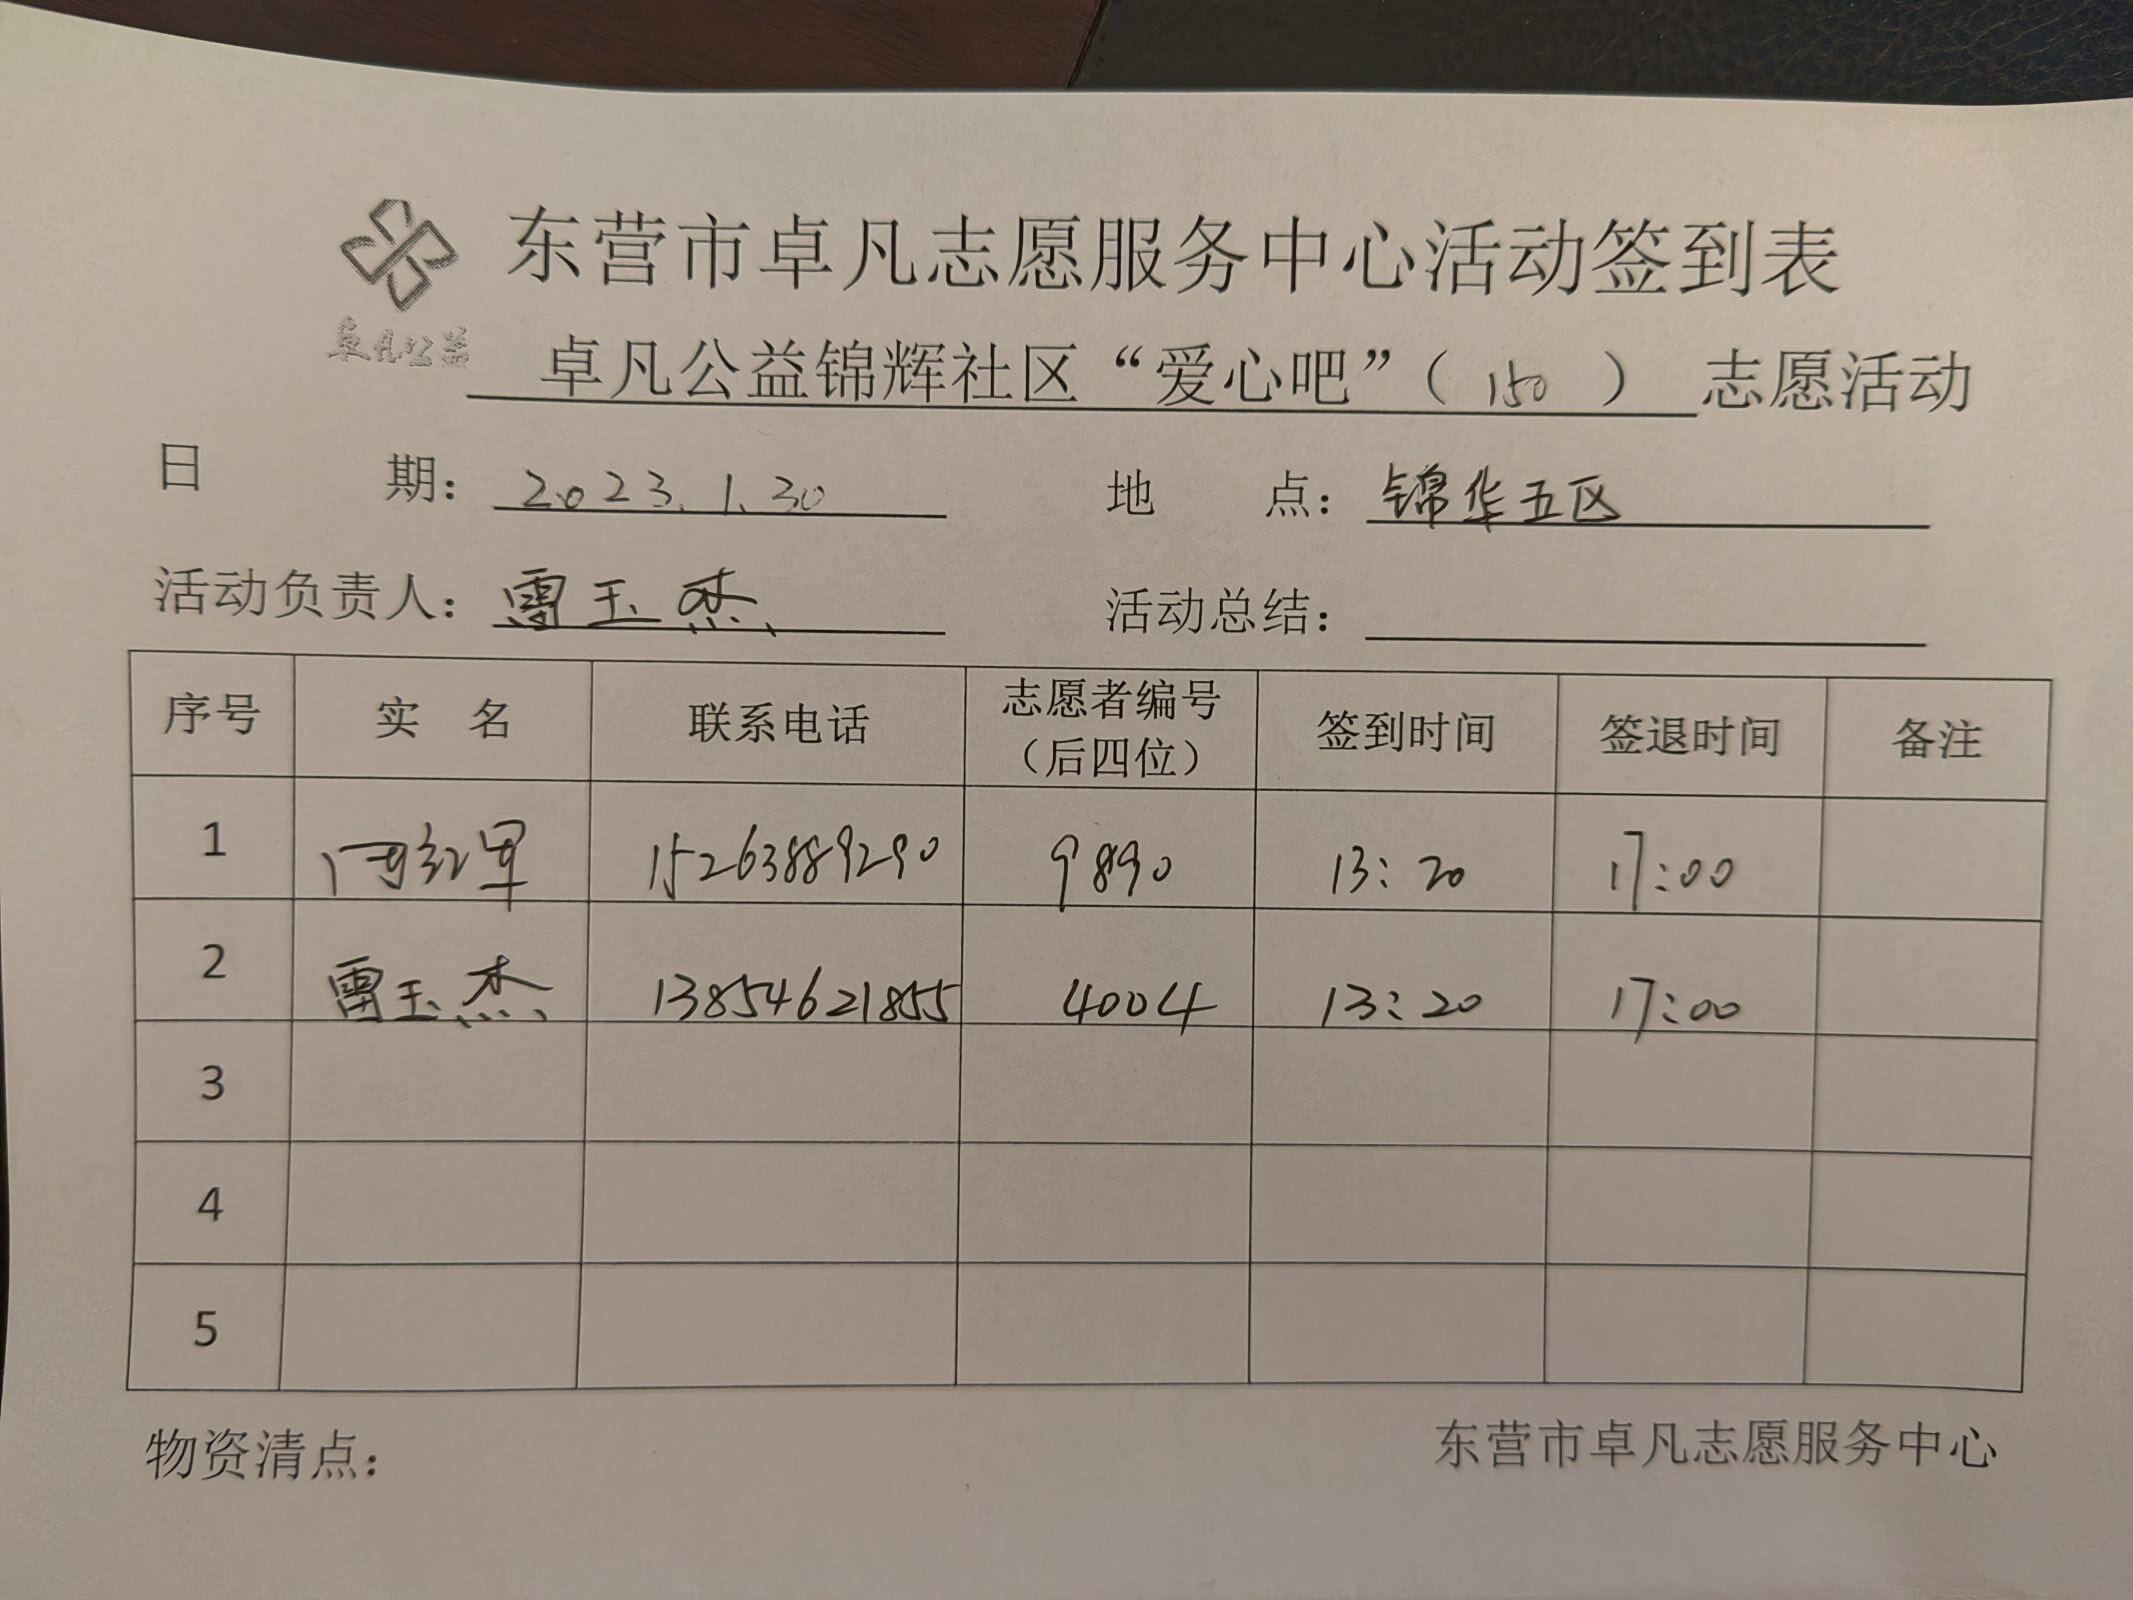 东营市卓凡志愿服务中心活动签到表
卓凡公益
卓凡公益锦辉社区“爱心吧”（150）志愿活动
日期：2023.1.30 地点：锦华五区
活动负责人：雷玉杰 活动总结：
序号 实名 联系电话 志愿者编号（后四位） 签到时间 签退时间 备注
1 红军 15263889290 9890 13:20 17:00
2 雷玉杰 13854621855 4004 13:20 17:00
3
4
5
物资清点： 东营市卓凡志愿服务中心